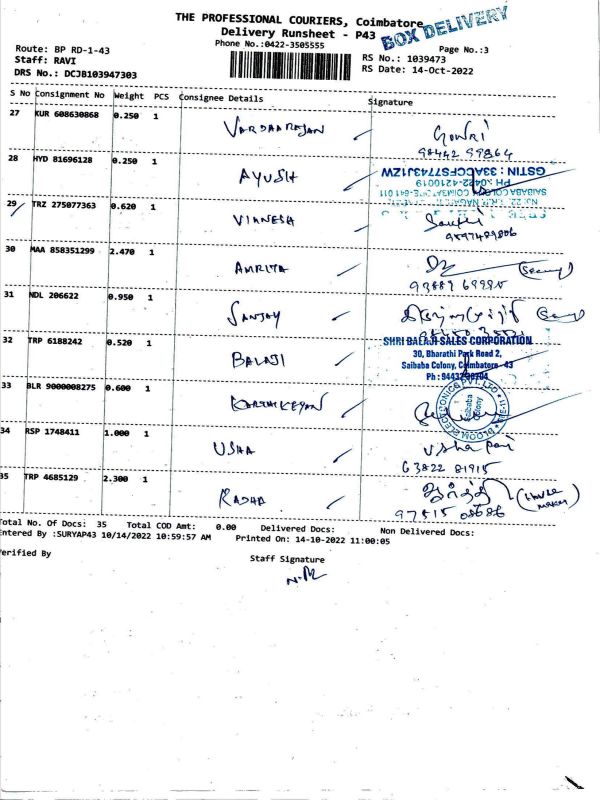 THE PROFESSIONAL COURIERS, Coimbatore
Delivery Runsheet - P43
BOX DELIVERY
Phone No.:0422-3505555
Page No.:3
Route: BP RD-1-43
Staff: RAVI
DRS No.: DCJB103947303
RS No.: 1039473
RS Date: 14-Oct-2022
S No Consignment No Weight PCS Consignee Details Signature
27 KUR 608630868 0.250 1 VARDAARAJAN Gowri
98442 99864
28 HYD 81696128 0.250 1 AYUSH
GSTIN : 33ABCCFS7743J1ZW
PH : 0422-4210019
SAIBABA COLONY, COIMBATORE-641 011
29 TRZ 275077363 0.620 1 VIANESH
9597489806
30 MAA 858351299 2.470 1 AMRITA
93889 69985
31 NDL 206622 0.950 1 SANJAY
32 TRP 6188242 0.520 1 BALAJI
SHRI BALAJI SALES CORPORATION
30, Bharathi Park Road 2,
Saibaba Colony, Coimbatore - 43
33 BLR 9000008275 0.600 1 KARTHIKEYAN
Saibaba
Colony
34 RSP 1748411 1.000 1 USHA Usha
63822 81915
35 TRP 4685129 2.300 1 RADHA
97515 08686
Total No. Of Docs: 35 Total COD Amt: 0.00 Delivered Docs: Non Delivered Docs:
Entered By :SURYAP43 10/14/2022 10:59:57 AM Printed On: 14-10-2022 11:00:05
Verified By
Staff Signature